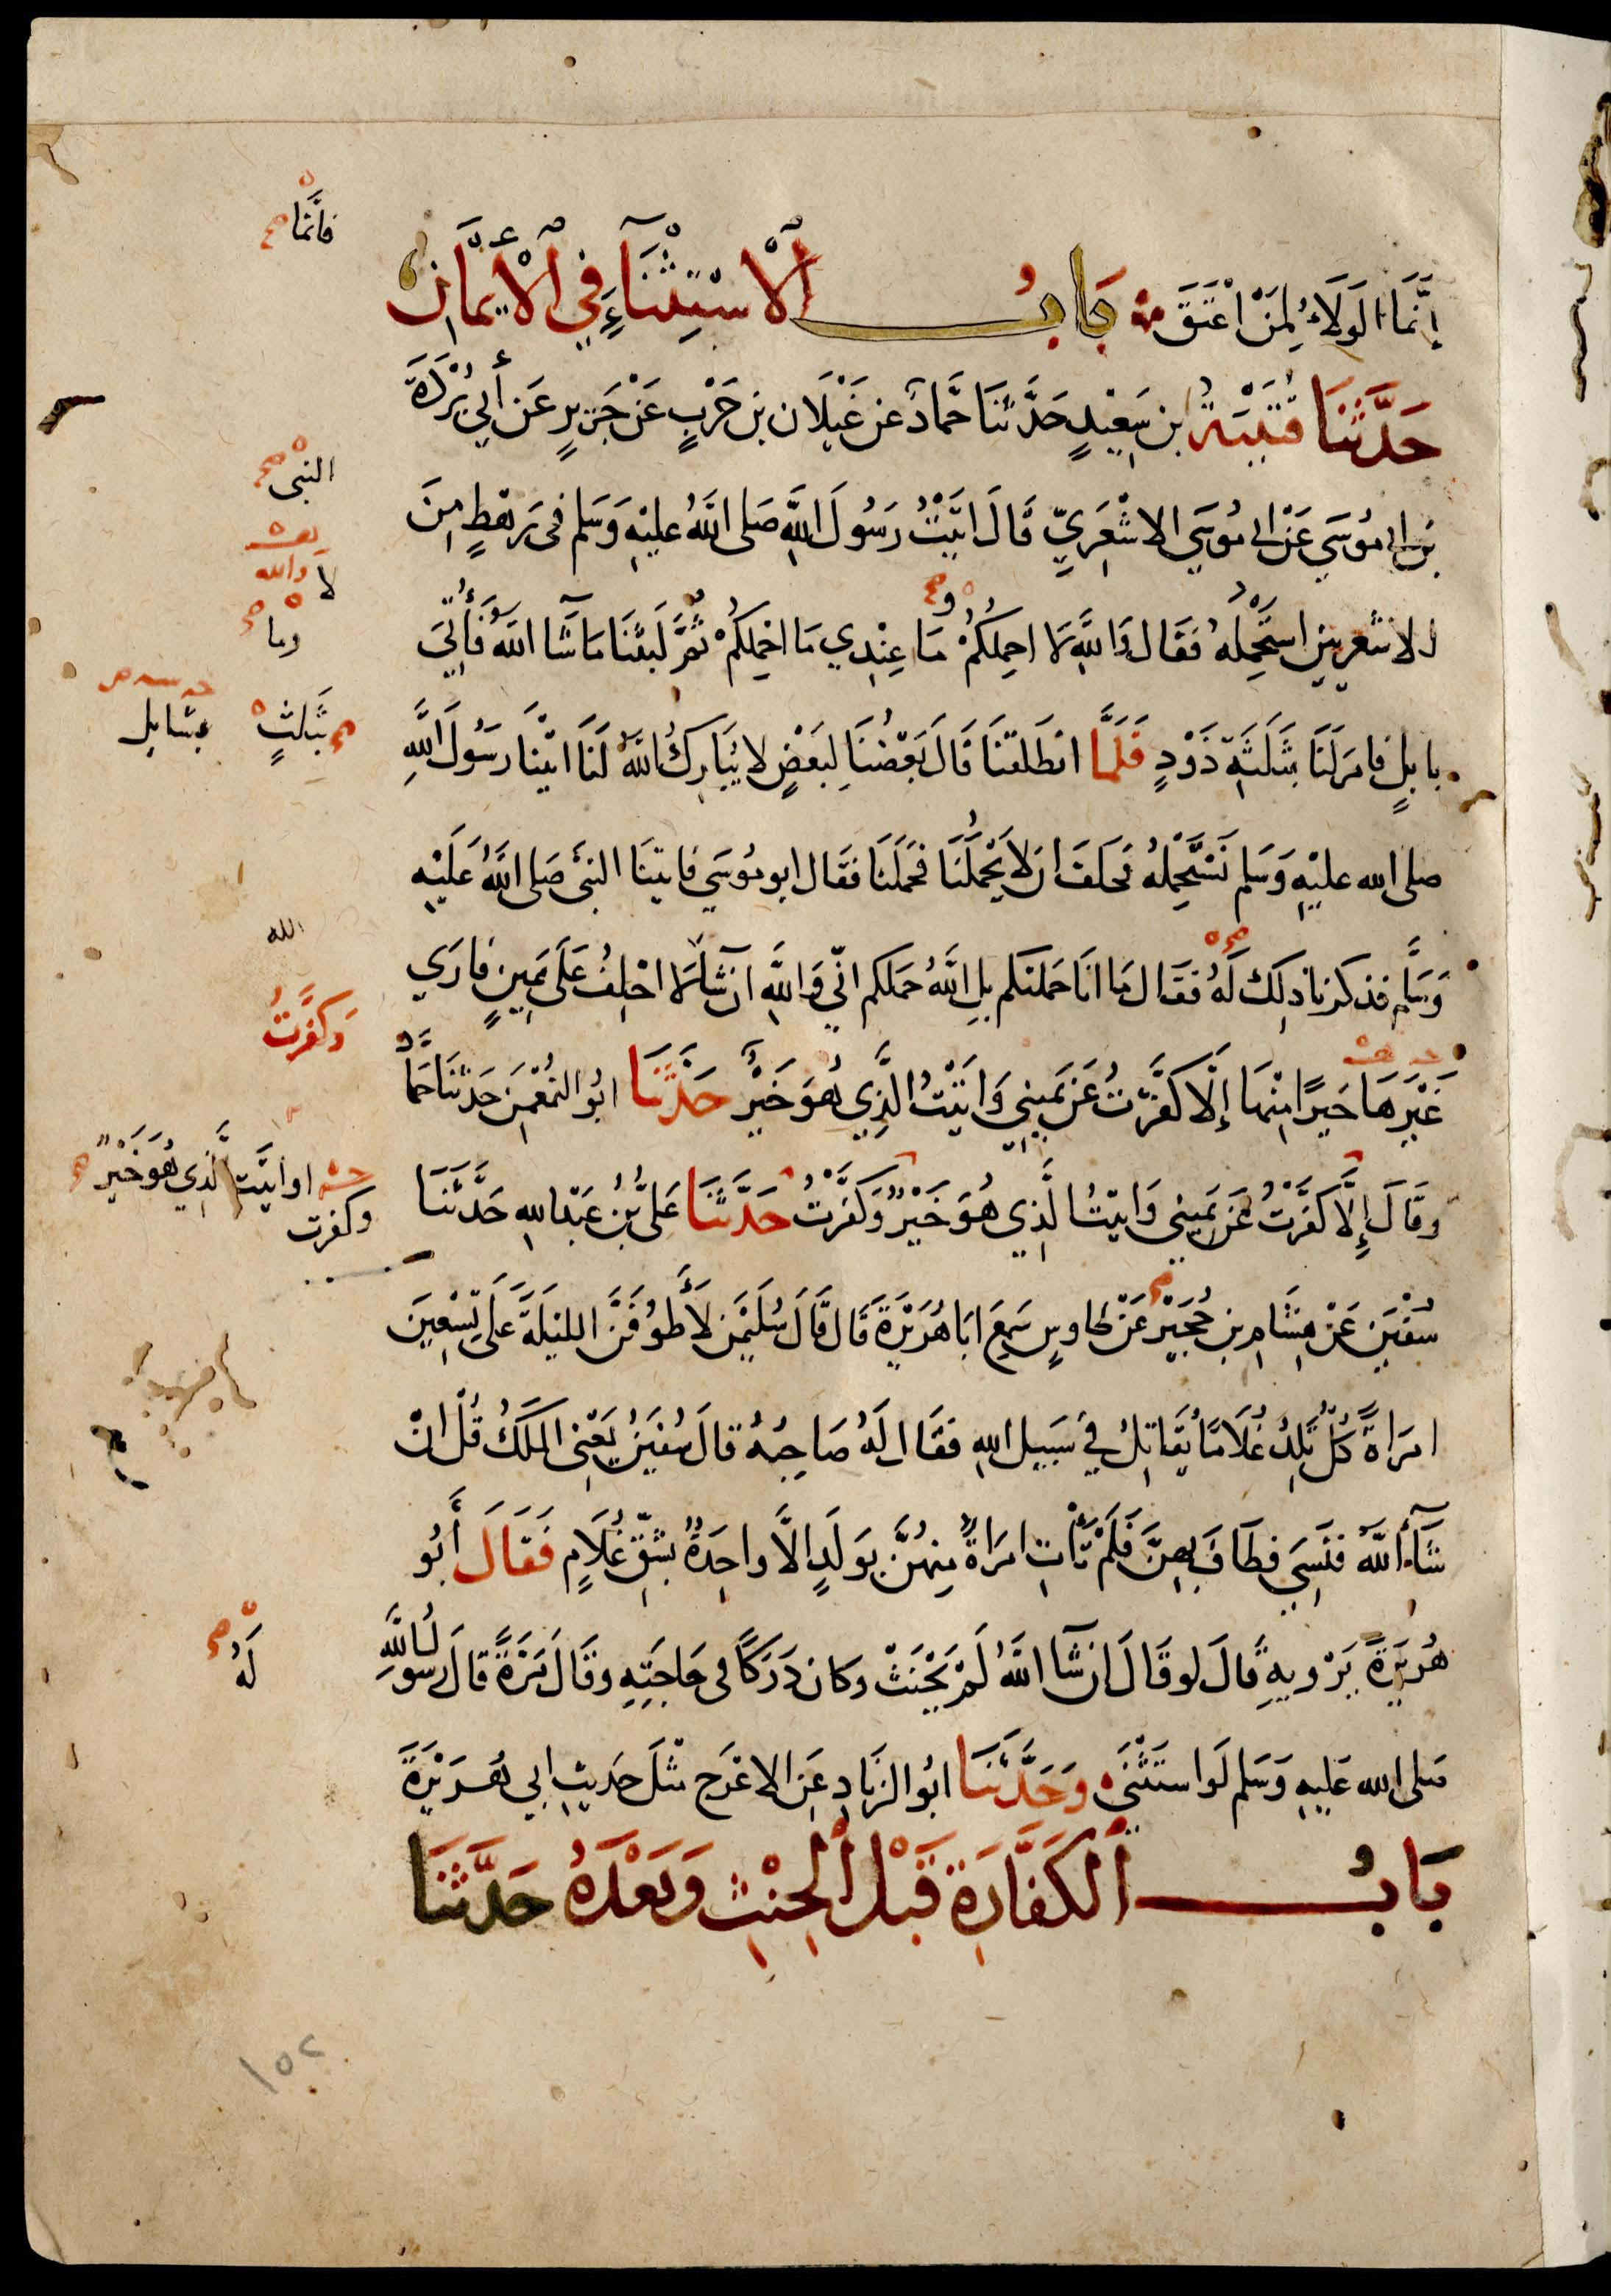 إِنَّمَا الوَلَاءُ لِمَنْ اعْتَقَ بَابُ الْاسْتِثْنَاءِ فِي الْأَيْمَانِ
حَدَّثَنَا قُتَيْبَةُ بن سَعِيْدٍ حَدَّثَنَا حَمَّادٌ عن غَيْلَان بن جَرِيْرٍ عَن أَبِي بُرْدَةَ
بن ابى مُوسَي عَنْ ابى مُوسَي الاشْعَرِيِّ قَالَ اتَيْتُ رَسُولَ اللَّهِ صَلى اللَّهُ عليْهِ وَسَلم فى رَهْطٍ مِنَ
الاشعريين استَحْمِلُهُ فَقَال وَاللَّهِ لَا احمِلُكُمْ مَا عِنْدِي مَا احْمِلُكُمْ ثُمَّ لَبِثْنَا مَا شَآ اللَّهُ فَأُتِيَ
بابلٍ فامَرَ لَنَا بثَلَثَةِ ذَوْدٍ فَلَمَّا انطَلقنَا قَالَ بَعْضُنَا لِبَعْضٍ لا يُبَارِكُ اللَّهُ لَنَا اتيْنَا رَسُولَ اللَّهِ
صلى الله عليْهِ وَسَلم نَسْتَحْمِلُهُ فحَلَفَ ان لَا يَحْمِلَنَا فحَمَلَنَا فقَال ابو مُوسَي فاتيْنَا النبىَّ صَلى اللَّهُ عَلَيْهِ
وَسَلَّم فذكرنا ذلِكَ لَهُ فقَال مَا انَا حَملتكم بلِ اللَّهُ حَملكم انّي وَاللَّهِ ان شَا اللهُ لَا احْلِفُ عَلَى يَمِينٍ فارَي
غَيْرَهَا خَيرًا مِنْهَا إِلَّا كفَّرْتُ عَن يَمِينِي وَاتَيْتُ الَّذِي هُوَ خَيْرٌ حَدَّثَنَا ابُو النعْمٰنِ حَدثَنَا حَمَّادٌ
وقَالَ إِلَّا كفَّرْتُ عَن يَمِينِي وَاتَيْتُ الَّذِي هُوَ خَيْرٌ وَكَفَّرْتُ حَدَّثَنَا عَلىُّ بْنُ عَبْدِ اللهِ حَدَّثَنَا
سُفْيٰن عَنْ هِشَامِ بن حُجَيْرٍ عَنْ طاوسٍ سَمِعَ ابَا هُرَيْرَةَ قَالَ قَالَ سُلَيْمٰن لَأَطُوفَنَّ الليْلَةَ عَلَى تِسْعِينَ
امرَاةً كُلٌّ تَلِدُ غُلَامًا يُقَاتِلُ فِي سَبِيلِ اللهِ فقَال لَهُ صَاحِبُهُ قالَ سُفيٰنُ يَعْنِى المَلَكَ قُلْ انْ
شَآءَ اللَّهُ فنَسِيَ فطَافَ بهِنَّ فَلَمْ تَأْتِ امرَاةٌ مِنهُنَّ بوَلَدٍ الَّا واحِدَةٌ بشِقِّ غُلَامٍ فَقَالَ أَبُو
هُرَيْرَةَ يَرْويهِ قَالَ لو قَالَ ان شَآ اللَّهُ لَمْ يَحْنَثْ وكان دَرَكًا فى حَاجَتِهِ وقَالَ مَرَّةً قالَ رَسُولُ اللَّهِ
صَلى الله عَليهِ وَسَلم لَو استَثْنَى وَحَدَّثَنَا ابُو الزنَادِ عَنِ الاعْرَجِ مثْلَ حَديثِ ابِي هُرَيْرَةَ
بَابُ الْكَفَّارَةِ قَبْلَ الْحِنْثِ وَبَعْدَهُ حَدَّثَنَا
فانَّمَا
النبى
لا والله
وما
بثَلٰثٍ
بشايل
الله
وَكَفَّرْتُ
او أتيْتُ الَّذِي هُوَ خَيْرٌ
وكفرت
لَهُ
١٥٢